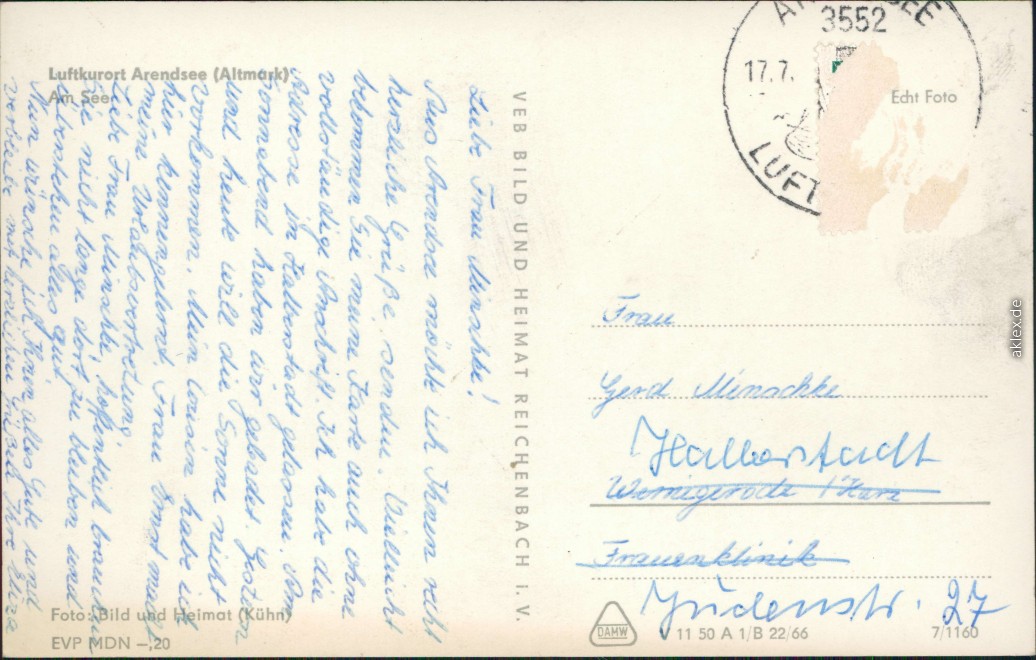 Luftkurort Arendsee (Altmark)
Am See
Liebe Frau Minschke!
Aus Arendsee möchte ich Ihnen recht
herzliche Grüße senden. Vielleicht
bekommen Sie meine Karte auch ohne
vollständige Anschrift. Ich habe die
Adresse in Halberstadt gelassen. Am
Sonnabend haben wir gebadet. Gestern
und heute will die Sonne nicht
vorkommen. Mein lesen habe ich
hier kennengelernt. Frau Ernst macht
meine Vertretung.
Liebe Frau Minschke, hoffentlich brauchen
Sie nicht lange dort zu bleiben und
überstehen alles gut.
Nun wünsche ich Ihnen alles Gute und
verbleibe mit herzlichen Grüßen Ihre
Foto: Bild und Heimat (Kühn)
EVP MDN –,20
VEB BILD UND HEIMAT REICHENBACH i. V.
3552
17.7.
LUFT
Echt Foto
Frau
Gerd Minschke
Halberstadt
Wernigerode / Harz
Frauenklinik
Judenstr. 27
DAMW
V 11 50 A 1/B 22/66
7/1160
aklex.de